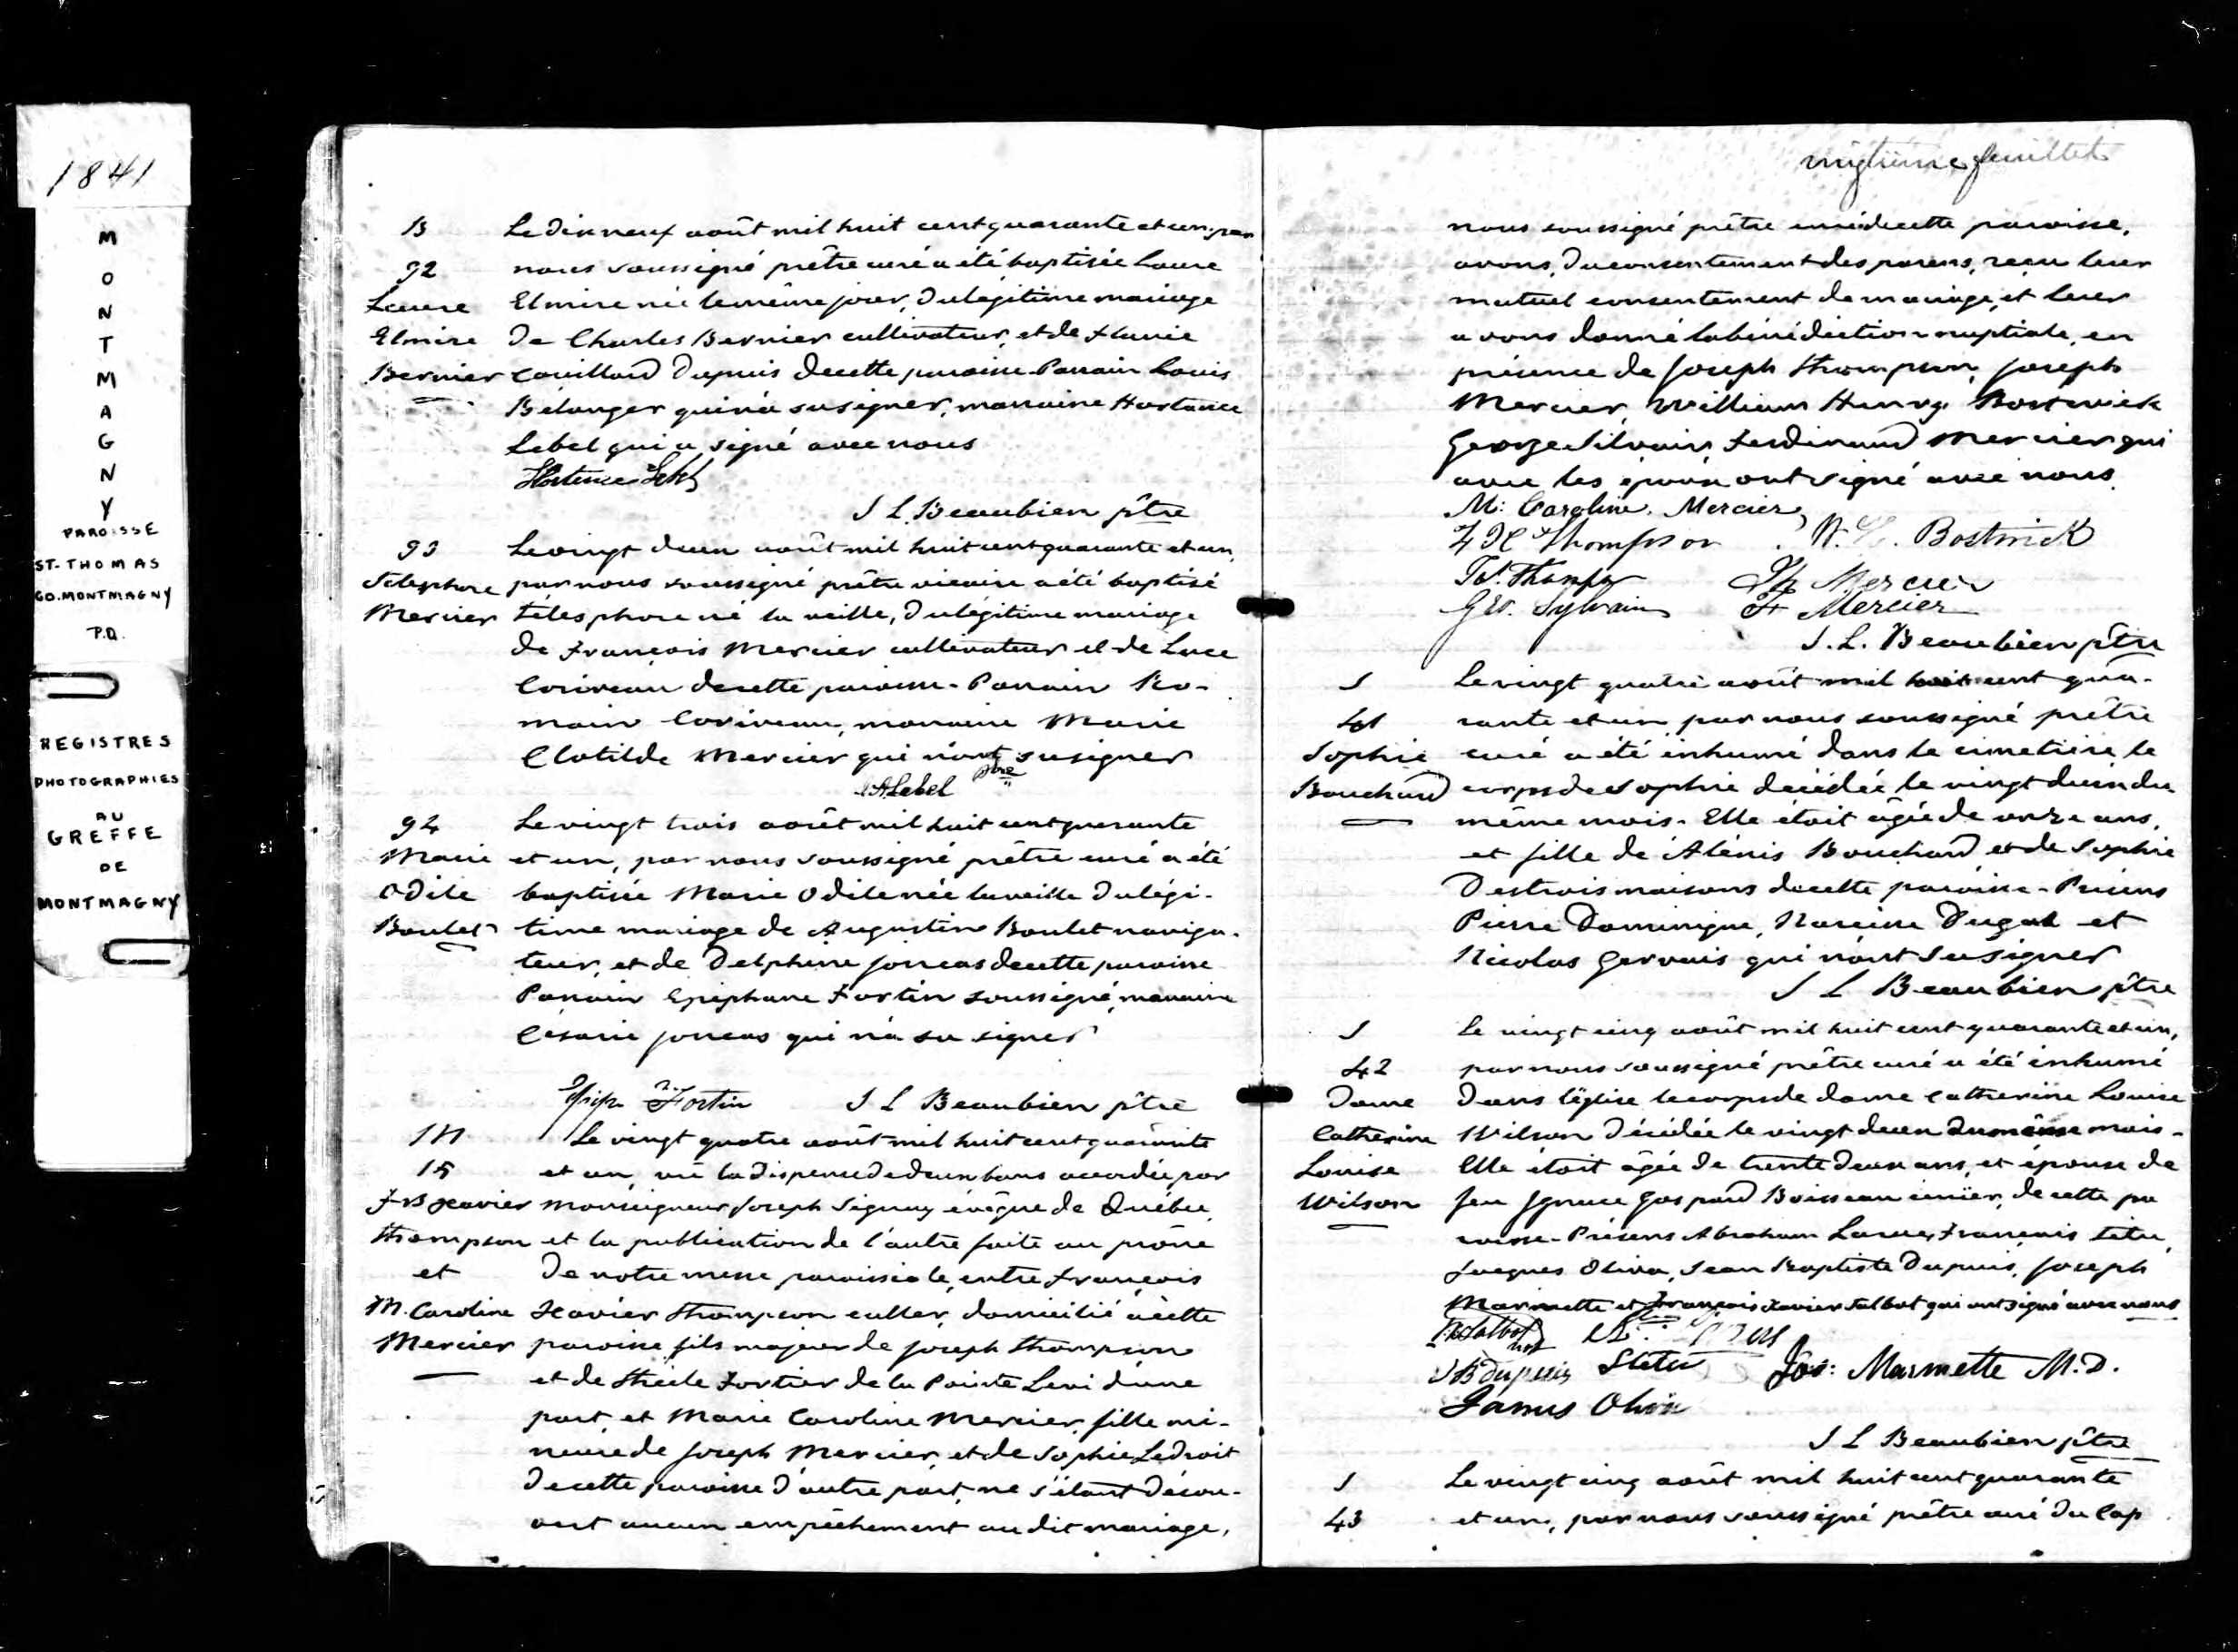 1841
MONTMAGNY
PAROISSE
ST-THOMAS
CO. MONTMAGNY
P.Q.
REGISTRES
PHOTOGRAPHIES
AU
GREFFE
DE
MONTMAGNY
B
92
Laure
Elmire
Bernier
Le dix neuf août mil huit cent quarante et un, par
nous soussigné prêtre curé a été baptisée Laure
Elmire née le même jour, du légitime mariage
de Charles Bernier cultivateur, et de Flavie
Couillard Dupuis de cette paroisse. Parrain Louis
Bélanger qui n'a su signer, marraine Hortance
Lebel qui a signé avec nous
Hortence Lebel
J L Beaubien ptre
93
Télesphore
Mercier
Le vingt deux août mil huit cent quarante et un,
par nous soussigné prêtre vicaire a été baptisé
télesphore né la veille, du légitime mariage
de François Mercier cultivateur et de Luce
Coriveau de cette paroisse. Parrain Ro-
main Coriveau, marraine Marie
Clotilde Mercier qui n'ont su signer
Lebel ptre
94
Marie
Odile
Boulet
Le vingt trois août mil huit cent quarante
et un, par nous soussigné prêtre curé a été
baptisée Marie Odile née la veille du légi-
time mariage de Augustin Boulet naviga-
teur, et de Delphine Joncas de cette paroisse
Parrain Epiphane Fortin soussigné, marraine
Césarie Joncas qui n'a su signer
Epiph Fortin J L Beaubien ptre
M
15
F Xavier
Thompson
et
M. Caroline
Mercier
Le vingt quatre août mil huit cent quarante
et un, vu la dispense de deux bans accordée par
Monseigneur Joseph Signay évêque de Québec,
et la publication de l'autre faite au prône
de notre messe paroissiale, entre François
Xavier Thompson culler, domicilié à cette
paroisse fils majeur de Joseph Thompson
et de Fortier de la Pointe Levi d'une
part, et Marie Caroline Mercier, fille mi-
neure de Joseph Mercier, et de Sophie Ledroit
de cette paroisse d'autre part, ne s'étant décou-
vert aucun empêchement au dit mariage,
vingtième feuillet
nous soussigné prêtre curé de cette paroisse,
avons, du consentement des parens, reçu leur
mutuel consentement de mariage, et leur
avons donné la bénédiction nuptiale, en
présence de Joseph Thompson, Joseph
Mercier, William Henry Bostwick
George Silvain, Ferdinand Mercier qui
avec les époux ont signé avec nous.
M: Caroline Mercier
F X Thompson W. H. Bostwick
Jos. Thompson Mercier
Geo. Sylvain F Mercier
J. L. Beaubien ptre
S
41
Sophie
Bouchard
Le vingt quatre août mil huit cent qua-
rante et un, par nous soussigné prêtre
curé a été inhumé dans le cimetière, le
corps de Sophie décédée le vingt deux du
même mois. Elle était âgée de onze ans,
et fille de Alexis Bouchard et de Sophie
Destroismaisons de cette paroisse. Présens
Pierre Dominique, Narcisse Dugal et
Nicolas Gervais qui n'ont su signer
J L Beaubien ptre
S
42
Dame
Catherine
Louise
Wilson
Le vingt cinq août mil huit cent quarante et un,
par nous soussigné prêtre curé a été inhumé
dans l'église le corps de dame Catherine Louise
Wilson décédée le vingt deux du même mois.
Elle était âgée de trente deux ans, et épouse de
feu Ignace Gaspard Boisseau de cette pa
roisse. Présens Abraham Larue, François Têtu,
Jacques Oliva, Jean Baptiste Dupuis, Joseph
Marmette et François Xavier Talbot qui ont signé avec nous
Talbot
JB dupuis Jos: Marmette M.D.
James Oliva
J L Beaubien ptre
S
43
Le vingt cinq août mil huit cent quarante
et un, par nous soussigné prêtre curé du Cap